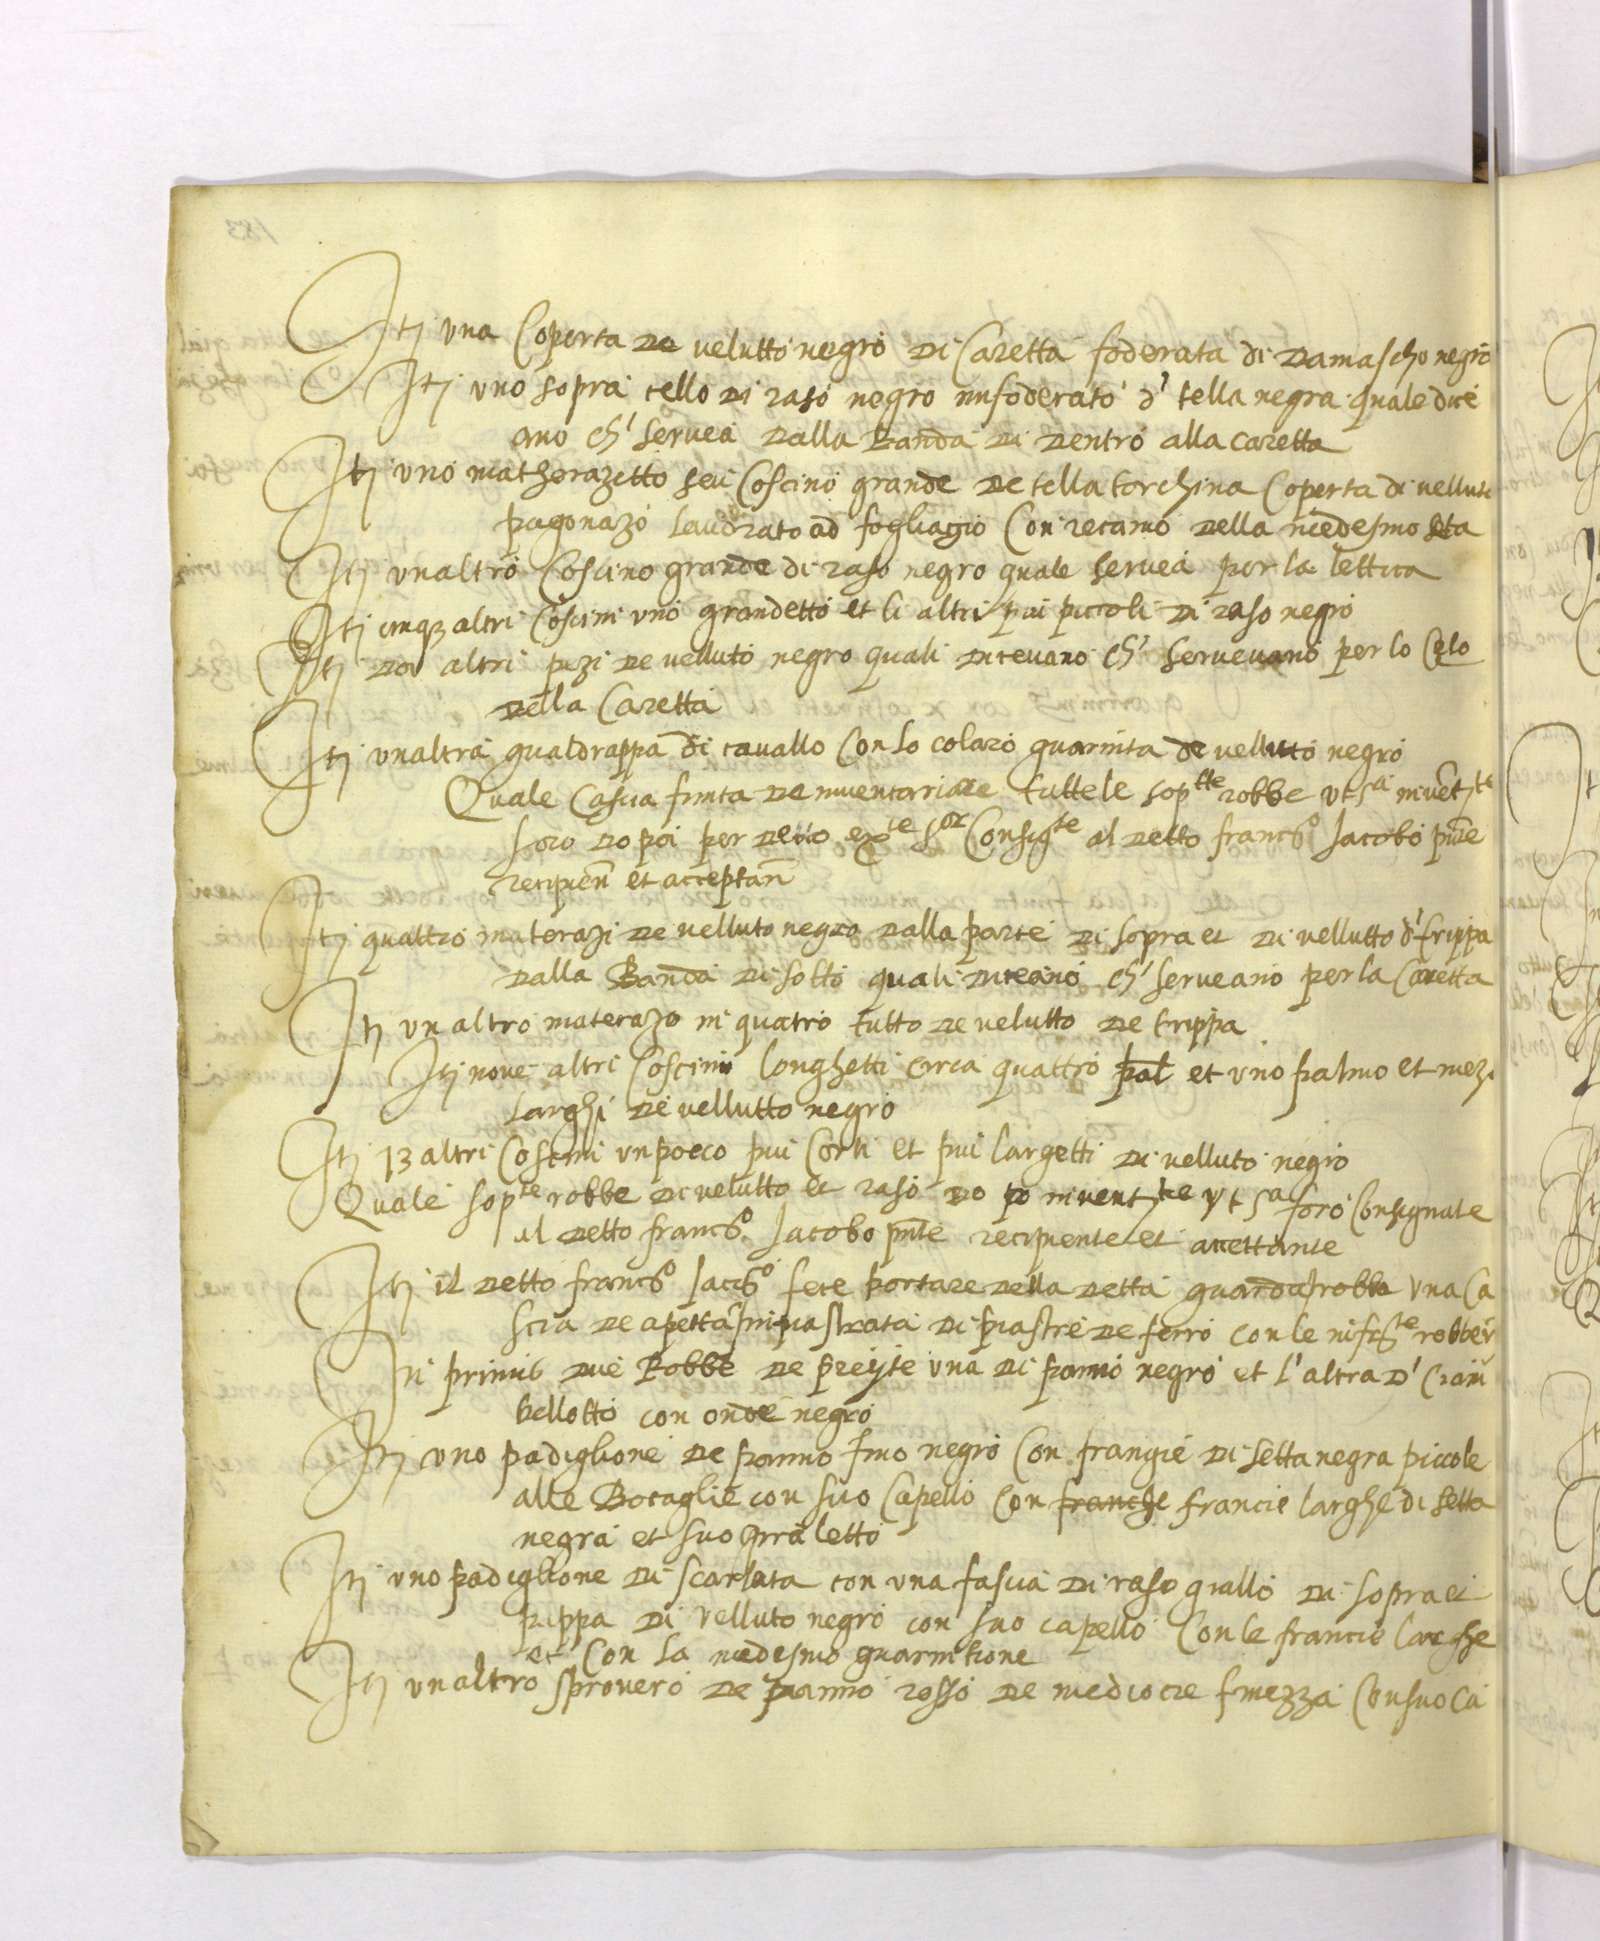 Itj una Coperta de velutto negro di Caretta foderata di Damascho negro
Itj uno sopra cello di raso negro infoderato d' tella negra quale dice
ano ch' servea dalla Banda di dentro alla caretta
Itj uno matherazetto seu Coscino grande de tella torchina Coperta di velluto
pagonazo lavorato ad fogliagio Con recamo della medesmo seta
Itj unaltro Coscino grande di raso negro quale servea per la lettica
Itj cinqz altri Coscini uno grandetto et li altri piu piccoli di raso negro
Itj doi altri pezi de velluto negro quali dicevano ch' servevano per lo Celo
della Caretta
Itj unaltra gualdrappa di cavallo Con lo colaro guarnita de vellutto negro
Quale Cascia finita de inventariare tutte le sop.tte robbe ut s.a invent.te
foro dopoi per detto Consig.te al detto franc.o Jacobo pnte
recipien et acceptan
Itj quattro materazi de velluto negro dalla parte di sopra et di vellutto d' trippa
dalla Banda di sotto quali diceano ch' serveano per la Caretta
Itj un altro materazo in quatro tutto de velutto de trippa
Itj nove altri Coscini longhetti circa quattro pal et uno palmo et mezo
larghi de vellutto negro
Itj 13 altri Coscini un poco piu Corti et piu largetti di velluto negro
Quale sop.te robbe di velutto et raso do po invent.te ut s.a foro Consignate
al detto franc.o Jacobo pnte recipiente et accettante
Itj il detto franc.o Jac.o fece portare della detta guardarobba una Ca
scia de apetta inpiastrata di piastre de ferro con le infr.te robbe
In primis due Robbe de preyte una di panno negro et l'altra d' Ciam
bellotto con onde negro
Itj uno padiglione de panno fino negro Con frangie di setta negra piccole
alle Botaglie con suo Capello Con franche francie larghe di setta
negra et suo spraletto
Itj uno padiglione di scarlata con una fascia di raso giallo di sopra et
pippa di velluto negro con suo capello Con le francie larghe
et Con la medesmo guarnitione
Itj unaltro sprovero de panno rosso de mediocre finezza Con suo Ca